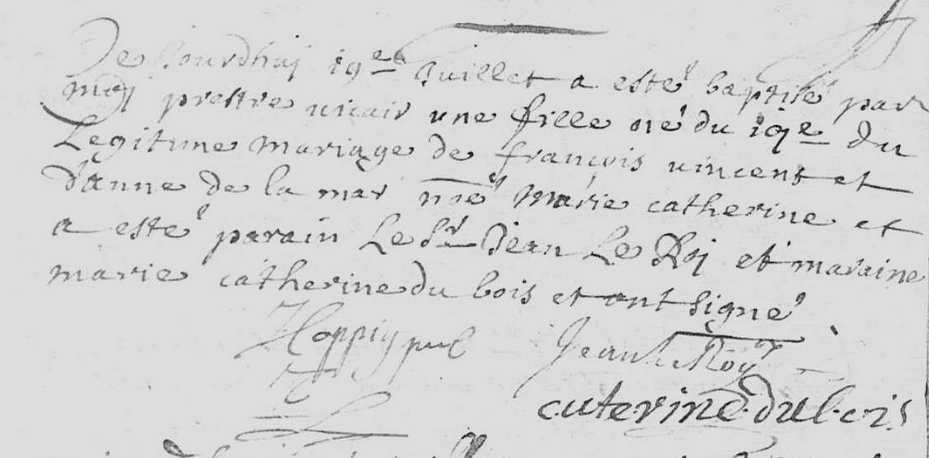 De Jourdhuj 19e Juillet a esté baptisé par
moj prestre vicair une fille né du 19e du
Legitime mariage de françois vincent et
d'anne de la mar né marie catherine et
a esté parain Le Sr Jean Le Roj et maraine
marie catherine du bois et ont signé
Jean Le Roy
caterine dubois